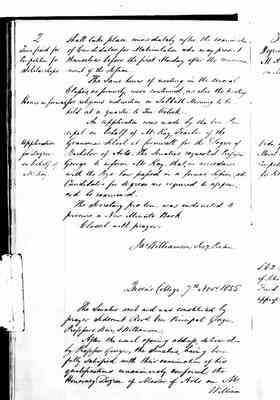 2
shall take place immediately after the examination
Time fixed for
of Candidates for Matriculation who may present
Competition for
themselves before the first Monday after the commence
Scholarships
ment of the Session.
The same hours of meeting in the several
Classes as formerly were continued, as also the
Hours as formerly
for religious instruction on Sabbath Morning to be
held at a quarter to Ten O'clock.
An application was made by the Vice Prin
Application
cipal on behalf of Mr Kay, Teacher of the
for degree
Grammar School at for the Degree of
on behalf of
Bachelor of Arts. The Senatus requested Professor
Mr Kay
George to inform Mr Kay, that in accordance
with the Bye law passed in a former Session, all
Candidates for degrees are required to appear
and be examined.
The Secretary pro tem. was instructed to
procure a New Minute Book
Closed with prayer.
Jas Williamson, Secy
Queen's College 7th Novr 1855
The Senatus met and was constituted by
prayer. Sederunt Revd Vice Principal George,
Professors Weir, & Williamson.
After the usual opening address delivered
by Professor George, the Senatus, having been
fully satisfied with their examination of his
qualifications unanimously conferred the
Honorary Degree of Master of Arts on Mr
William